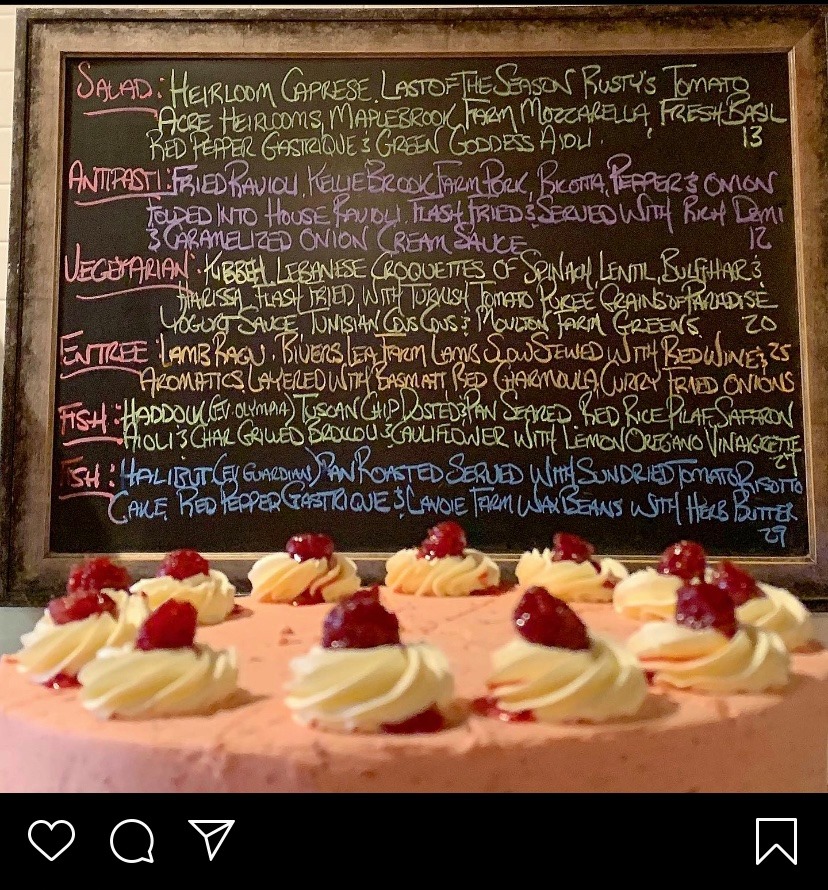 SALAD: HEIRLOOM CAPRESE. LAST OF THE SEASON RUSTY'S TOMATO
ACRE HEIRLOOMS, MAPLEBROOK FARM MOZZARELLA, FRESH BASIL
RED PEPPER GASTRIQUE & GREEN GODDESS AIOLI. 13
ANTIPASTI: FRIED RAVIOLI. KELLIE BROOK FARM PORK, RICOTTA, PEPPER & ONION
FOLDED INTO HOUSE RAVIOLI. FLASH FRIED & SERVED WITH RICH DEMI
& CARAMELIZED ONION CREAM SAUCE 12
VEGETARIAN: KIBBEH, LEBANESE CROQUETTES OF SPINACH, LENTIL, BULGHAR &
HARISSA, FLASH FRIED, WITH TURKISH TOMATO PUREE GRAINS OF PARADISE
YOGURT SAUCE TUNISIAN COUS COUS & MOULTON FARM GREENS 20
ENTREE: LAMB RAGU. RIVERS LEA FARM LAMB SLOW STEWED WITH RED WINE & 25
AROMATICS LAYERED WITH BASMATI RED CHARMOULA, CURRY FRIED ONIONS
FISH: HADDOCK (F/V OLYMPIA) TUSCAN CHIP DUSTED & PAN SEARED. RED RICE PILAF, SAFFRON
AIOLI & CHAR GRILLED BROCCOLI & CAULIFLOWER WITH LEMON OREGANO VINAIGRETTE
27
FISH: HALIBUT (F/V GUARDIAN) PAN ROASTED SERVED WITH SUNDRIED TOMATO RISOTTO
CAKE, RED PEPPER GASTRIQUE & LAVOIE FARM WAX BEANS WITH HERB BUTTER
29